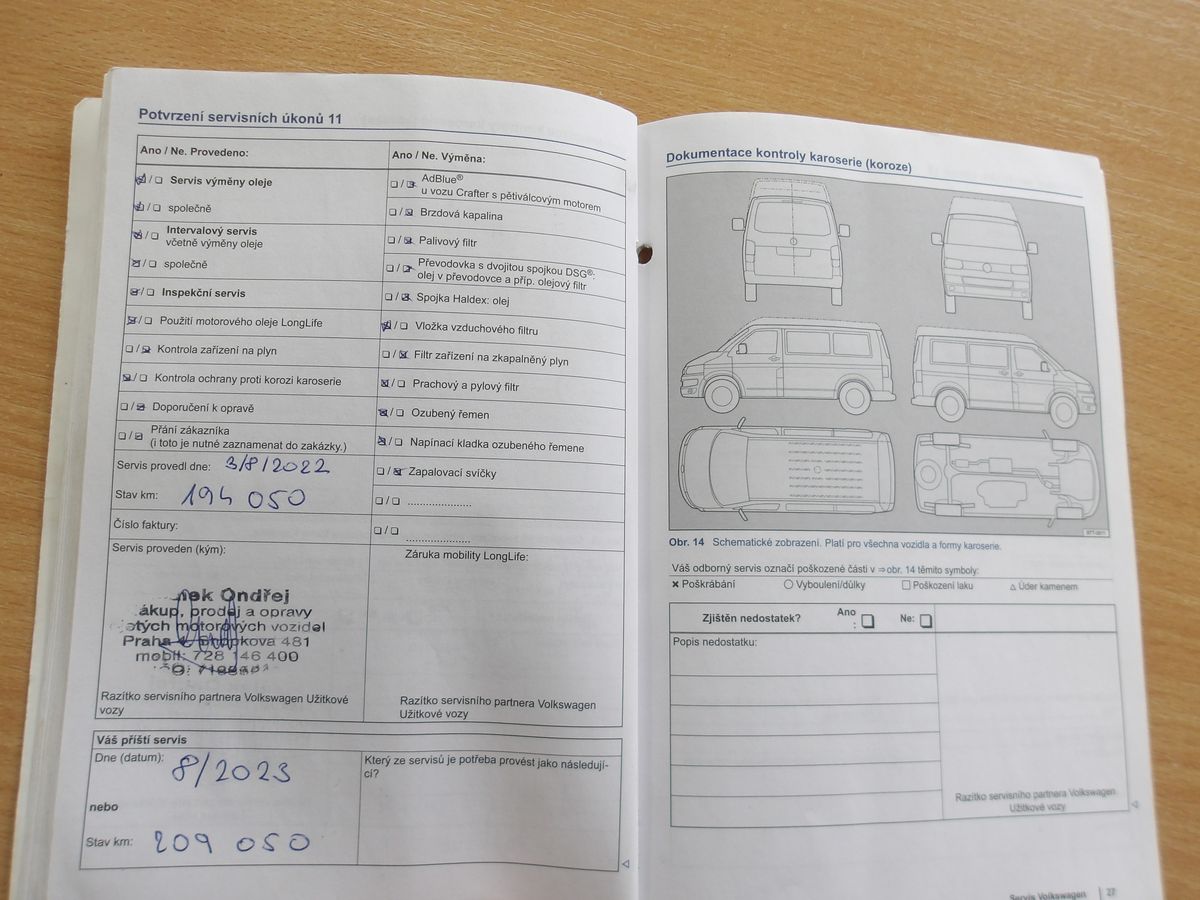 Potvrzení servisních úkonů 11
Ano / Ne. Provedeno:
Servis výměny oleje
společně
Intervalový servis
včetně výměny oleje
společně
Inspekční servis
Použití motorového oleje LongLife
Kontrola zařízení na plyn
Kontrola ochrany proti korozi karoserie
Doporučení k opravě
Přání zákazníka
(i toto je nutné zaznamenat do zakázky.)
Servis provedl dne: 3/8/2022
Stav km: 194 050
Číslo faktury:
Servis proveden (kým):
nek Ondřej
ákup, prodej a opravy
otých motorových vozidel
Praha 481
mobil: 728 146 400
Razítko servisního partnera Volkswagen Užitkové
vozy
Ano / Ne. Výměna:
AdBlue®
u vozu Crafter s pětiválcovým motorem
Brzdová kapalina
Palivový filtr
Převodovka s dvojitou spojkou DSG®:
olej v převodovce a příp. olejový filtr
Spojka Haldex: olej
Vložka vzduchového filtru
Filtr zařízení na zkapalněný plyn
Prachový a pylový filtr
Ozubený řemen
Napínací kladka ozubeného řemene
Zapalovací svíčky
Záruka mobility LongLife:
Razítko servisního partnera Volkswagen
Užitkové vozy
Váš příští servis
Dne (datum): 8/2023
nebo
Stav km: 209 050
Který ze servisů je potřeba provést jako následují-
cí?
Dokumentace kontroly karoserie (koroze)
Obr. 14 Schematické zobrazení. Platí pro všechna vozidla a formy karoserie.
Váš odborný servis označí poškozené části v ⇒ obr. 14 těmito symboly:
✖ Poškrábání ○ Vyboulení/důlky □ Poškození laku △ Úder kamenem
Zjištěn nedostatek? Ano : Ne:
Popis nedostatku:
Razítko servisního partnera Volkswagen
Užitkové vozy
Servis Volkswagen 27